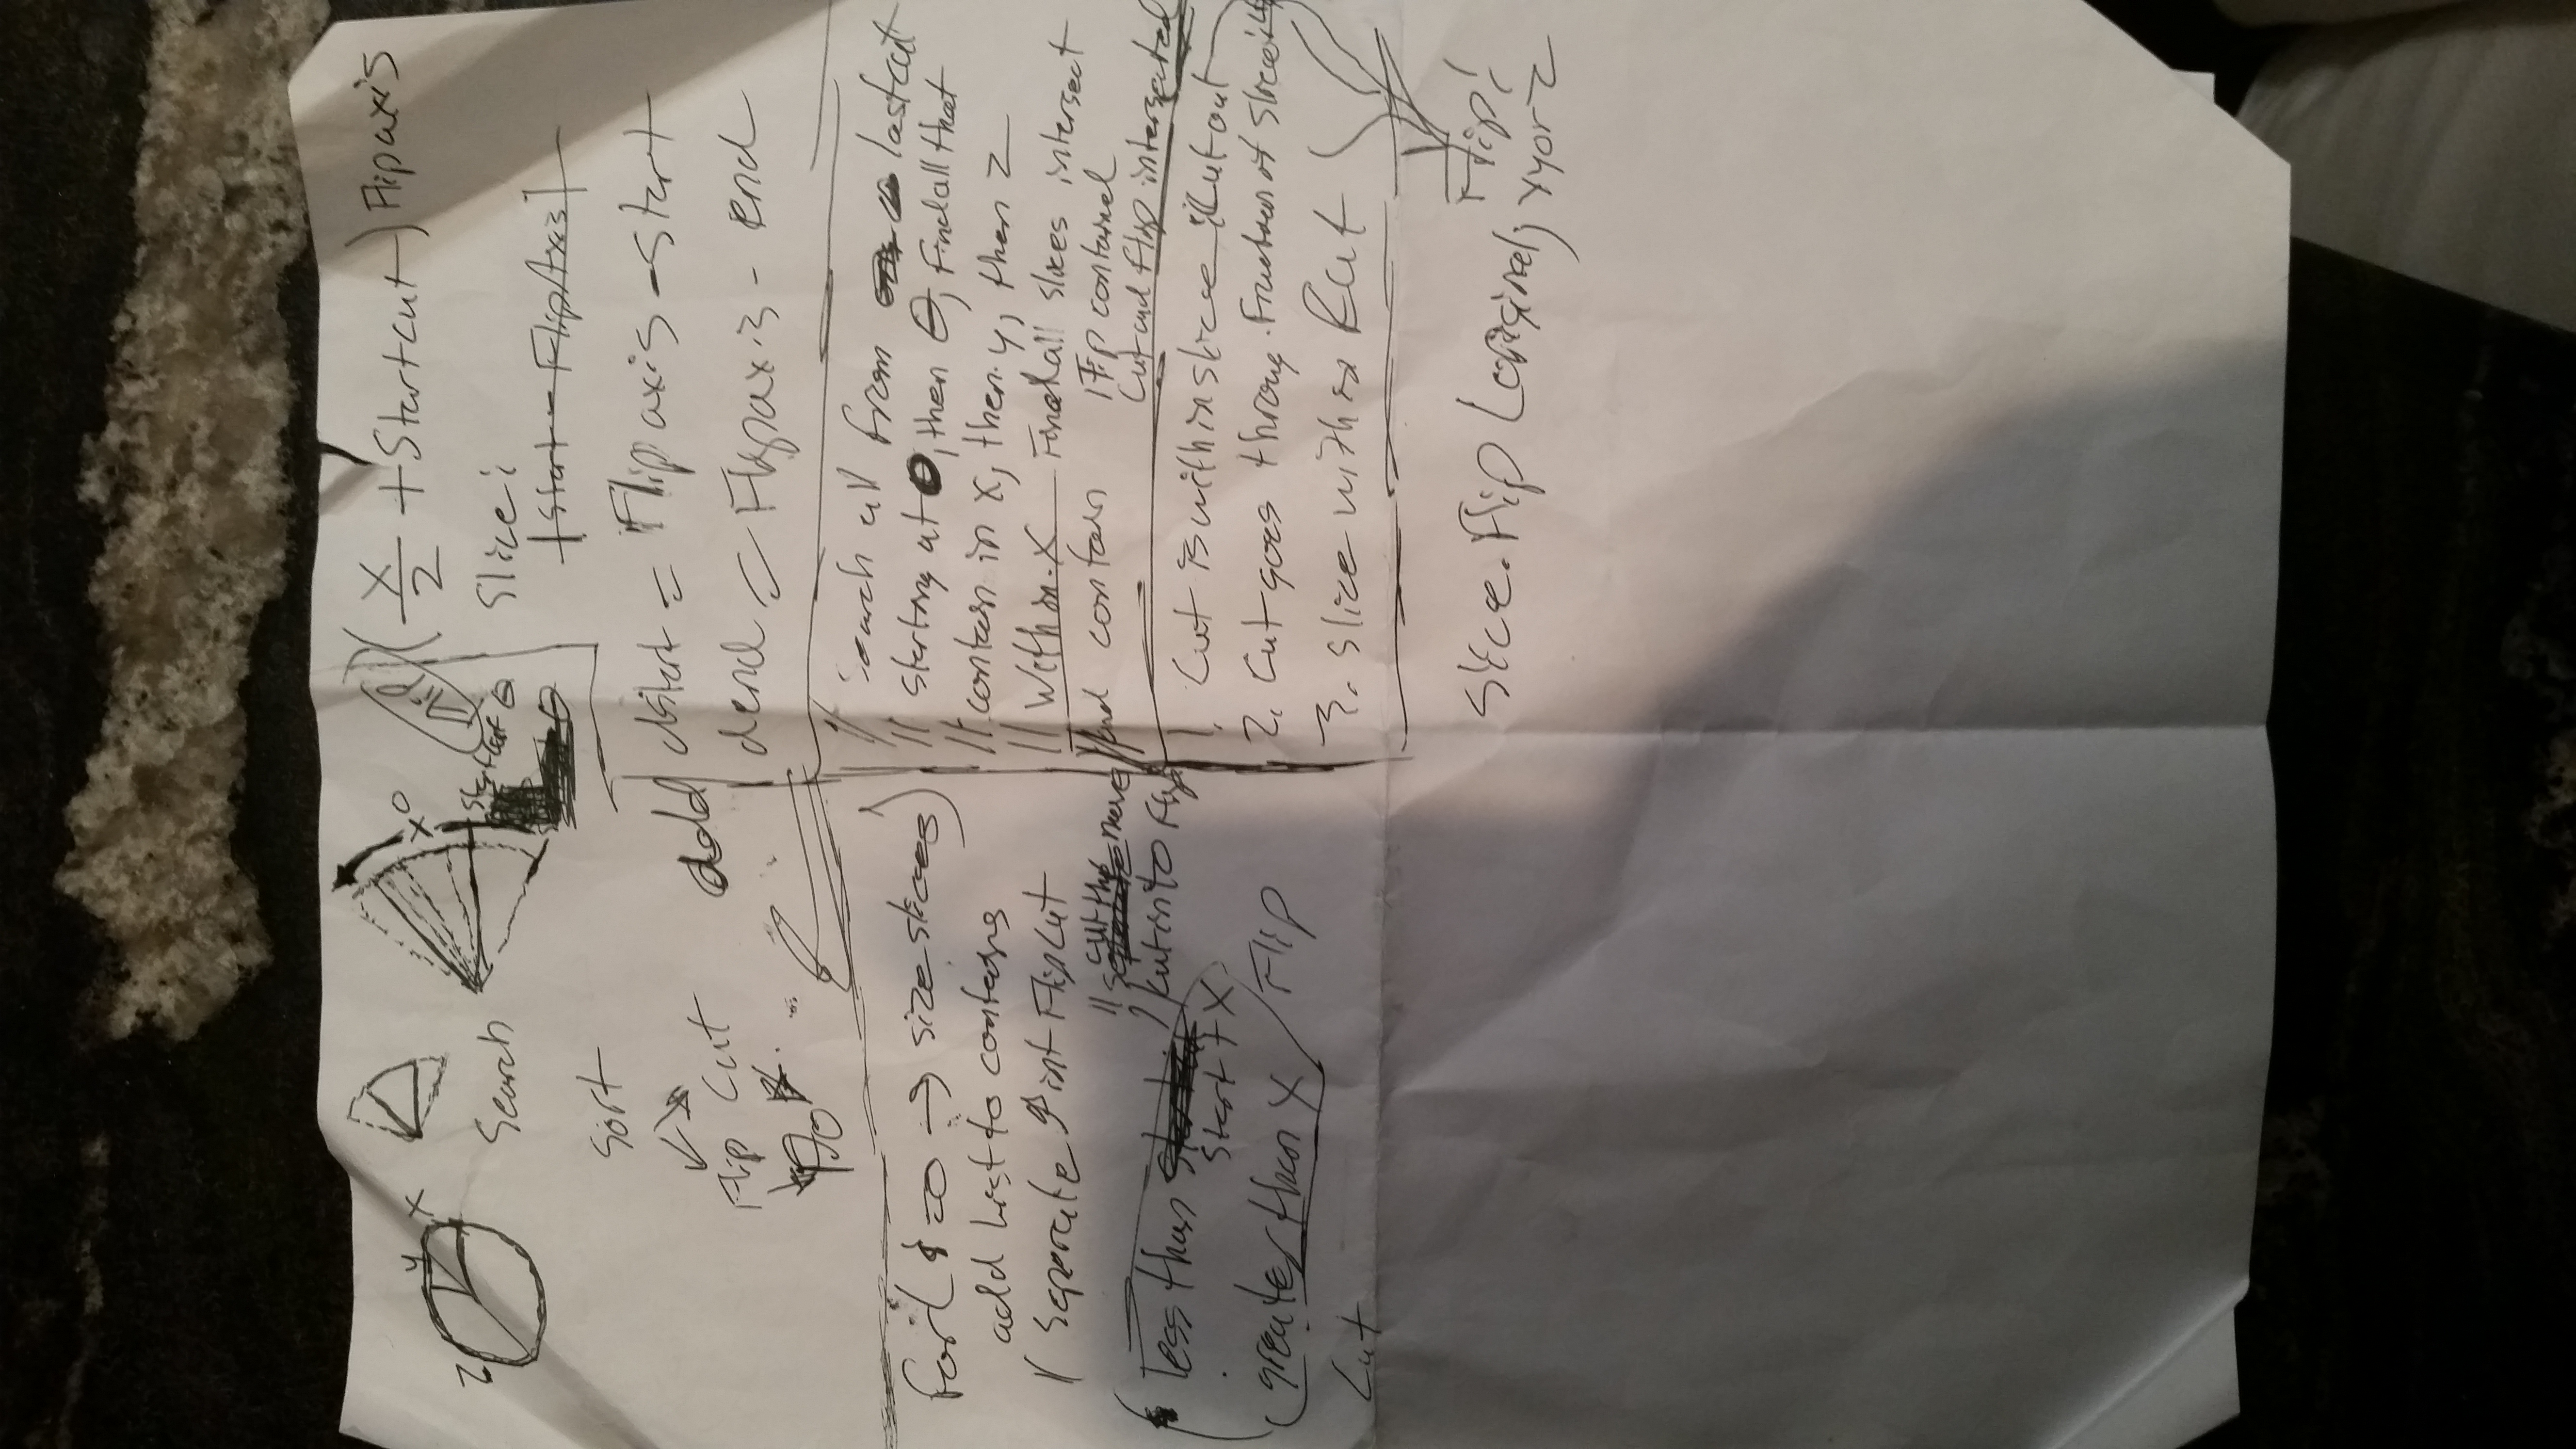 Z y x
Search
x°
Start cut θ
Sort
Flip Cut
Do
Flip
(x/2 + Startcut) Flip axis
Slice:
|Start - FlipAxis|
add
dstart = Flip axis - start
dend = Flipaxis - end
for( i=0 → size slices)
add list to contains
// Seperate int Flip Cut
// cut the move
// cut into Flip
less than
Start + X
greater than X / Flip
Cut
// Search all from last cut
// starting at 0, then θ, find all that
// contain in x, then y, then z
// Within X Find all slices intersect
// and contain Flip contained
Cut and flip intersected
1. Cut is within slice Cut out
2. Cut goes throug Fraction of slice
3. Slice within Cut
Flip!
Slice.Flip (original, x y or z